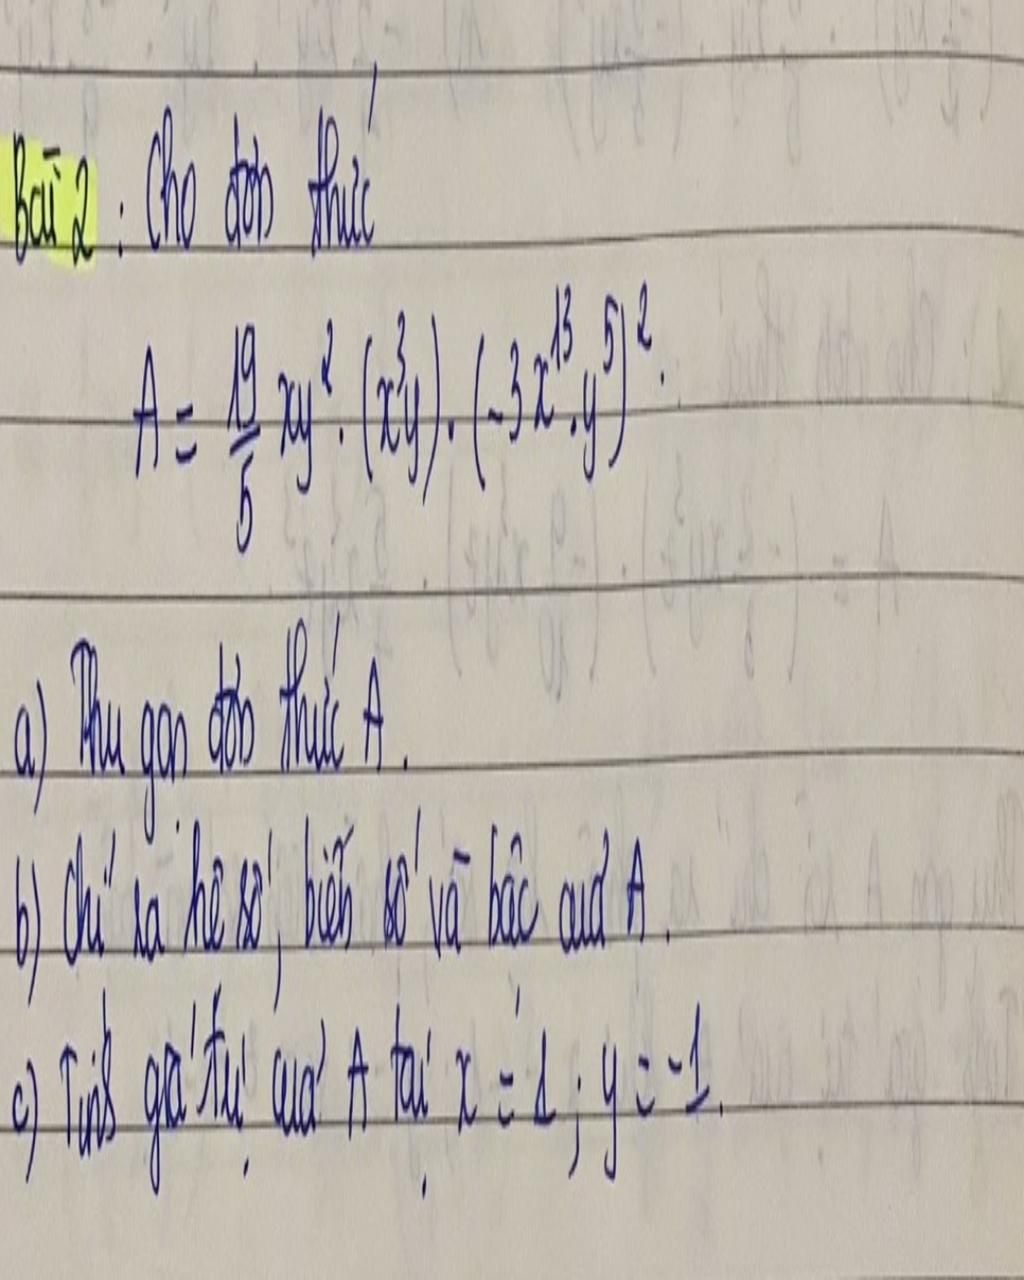 Bài 2 : Cho đơn thức
A = 19/5 xy². (x³y). (-3x¹³.y⁵)².
a) Thu gọn đơn thức A.
b) Chỉ ra hệ số, biến số và bậc của A.
c) Tính giá trị của A tại x = 1; y = -1.